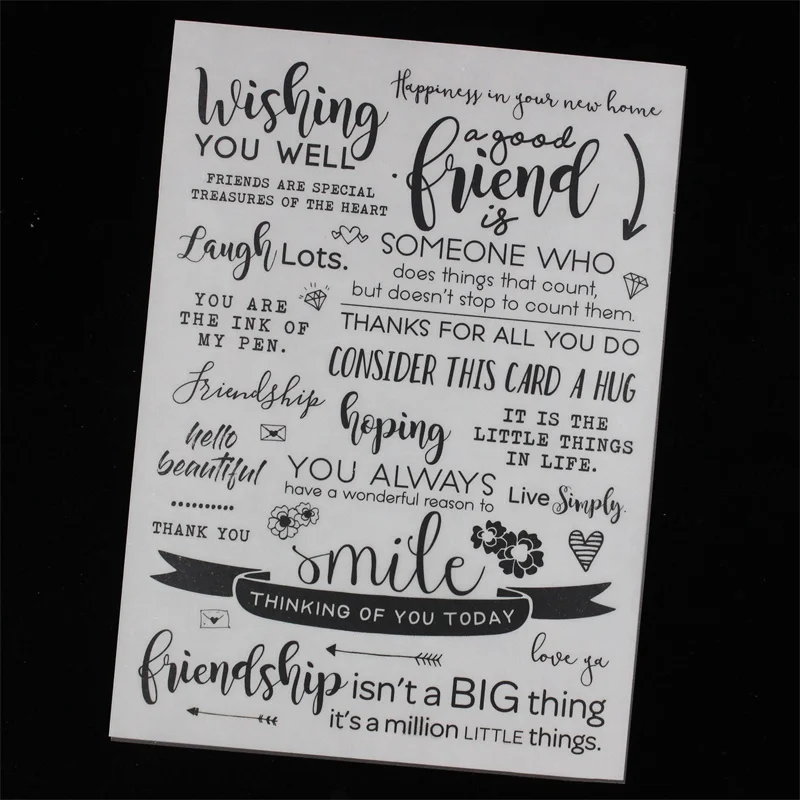 Wishing
YOU WELL
FRIENDS ARE SPECIAL
TREASURES OF THE HEART
Happiness in your new home
a good
friend
is
SOMEONE WHO
does things that count,
but doesn't stop to count them.
Laugh Lots.
YOU ARE
THE INK OF
MY PEN.
THANKS FOR ALL YOU DO
CONSIDER THIS CARD A HUG
Friendship
hello
beautiful
hoping
YOU ALWAYS
have a wonderful reason to
smile
IT IS THE
LITTLE THINGS
IN LIFE.
Live Simply.
THANK YOU
THINKING OF YOU TODAY
love ya
friendship isn't a BIG thing
it's a million LITTLE things.